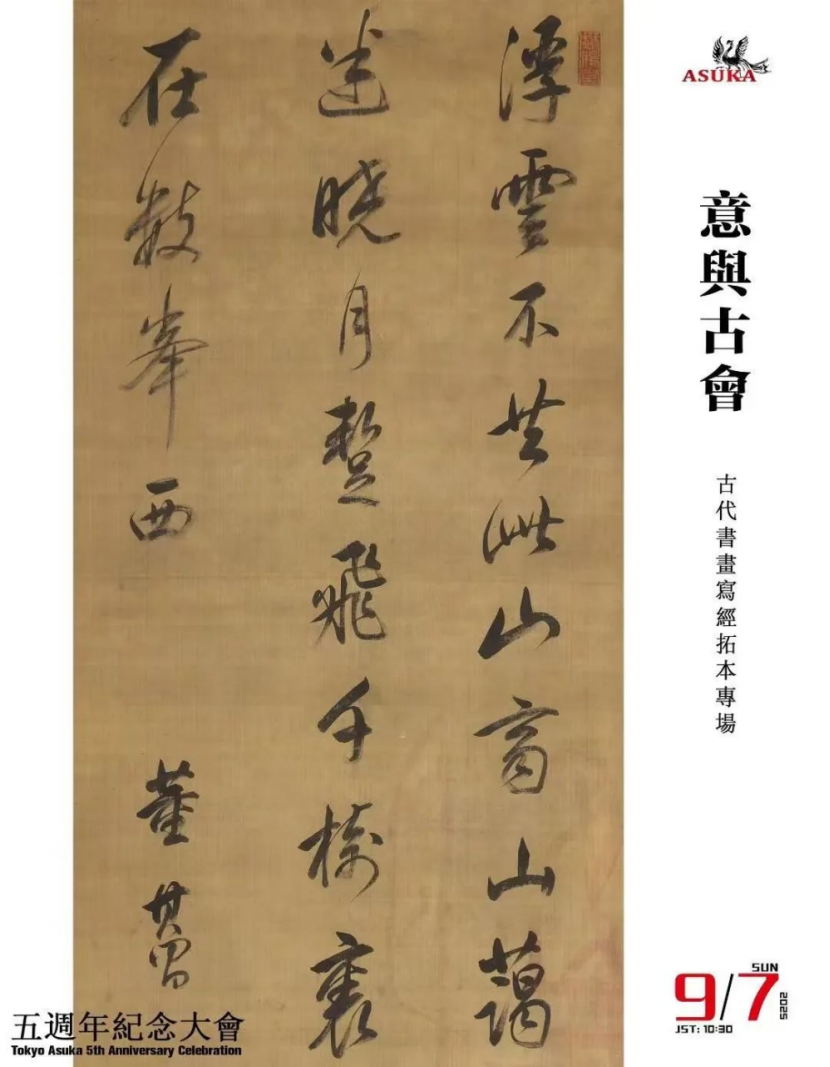 ASUKA
意與古會
古代書畫寫經拓本專場
浮雲不共此山齊山藹
迷曉月暫飛千樹裏
在數峯西
董其昌
9/7
SUN
2025
JST: 10:30
五週年紀念大會
Tokyo Asuka 5th Anniversary Celebration